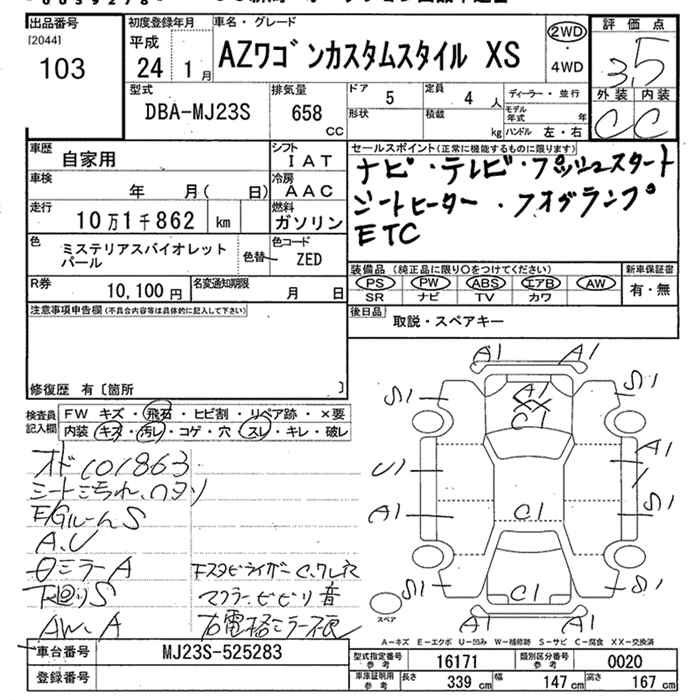 出品番号 初度登録年月 車名・グレード 評価点
[2044] 平成 2WD
103 24 1月 AZワゴンカスタムスタイル XS 4WD 3.5
型式 排気量 ドア 定員 ディーラー・並行 外装 内装
DBA-MJ23S 658 cc 5 4人 モデル年式 年 C C
形状 積載 kg ハンドル 左・右
車歴 自家用 シフト IAT セールスポイント(正常に機能するものに限ります)
車検 年 月( 日) 冷房 AAC ナビ・テレビ・プッシュスタート
走行 10万1千862 km 燃料 ガソリン シートヒーター・フォグランプ
ETC
色 ミステリアスバイオレット 色替 色コード ZED
パール
装備品(純正品に限り○をつけてください) 新車保証書
PS PW ABS エアB AW 有・無
SR ナビ TV カワ
R券 10,100円 名変通知期限 月 日
後日品 取説・スペアキー
注意事項申告欄(不具合内容等は具体的に記入して下さい)
修復歴 有〔箇所 〕
検査員記入欄 FW キズ・飛石・ヒビ割・リペア跡・×要
内装・キズ・汚レ・コゲ・穴・スレ・キレ・破レ
オド101863
シートよごれ、ヘタリ
E/GルームS
A.U
ミラーA
下廻りS
マフラービビリ音
AW.A
右電格ミラー不良
A1 A1
S1 A1 S1
XX
C1
U1 A1
1
A1 C1 S1
S1 C1 S1
A1 A1
スペア
A-キズ E-エクボ U-凹み W-補修跡 S-サビ C-腐食 XX-交換済
車台番号 MJ23S-525283
登録番号
型式指定番号 参考 16171 類別区分番号 参考 0020
車庫証明用 参考 長さ 339cm 幅 147cm 高さ 167cm